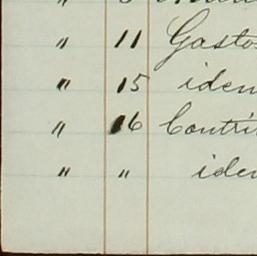 " 11 Gasto
" 15 iden
" 16 Contri
" " iden